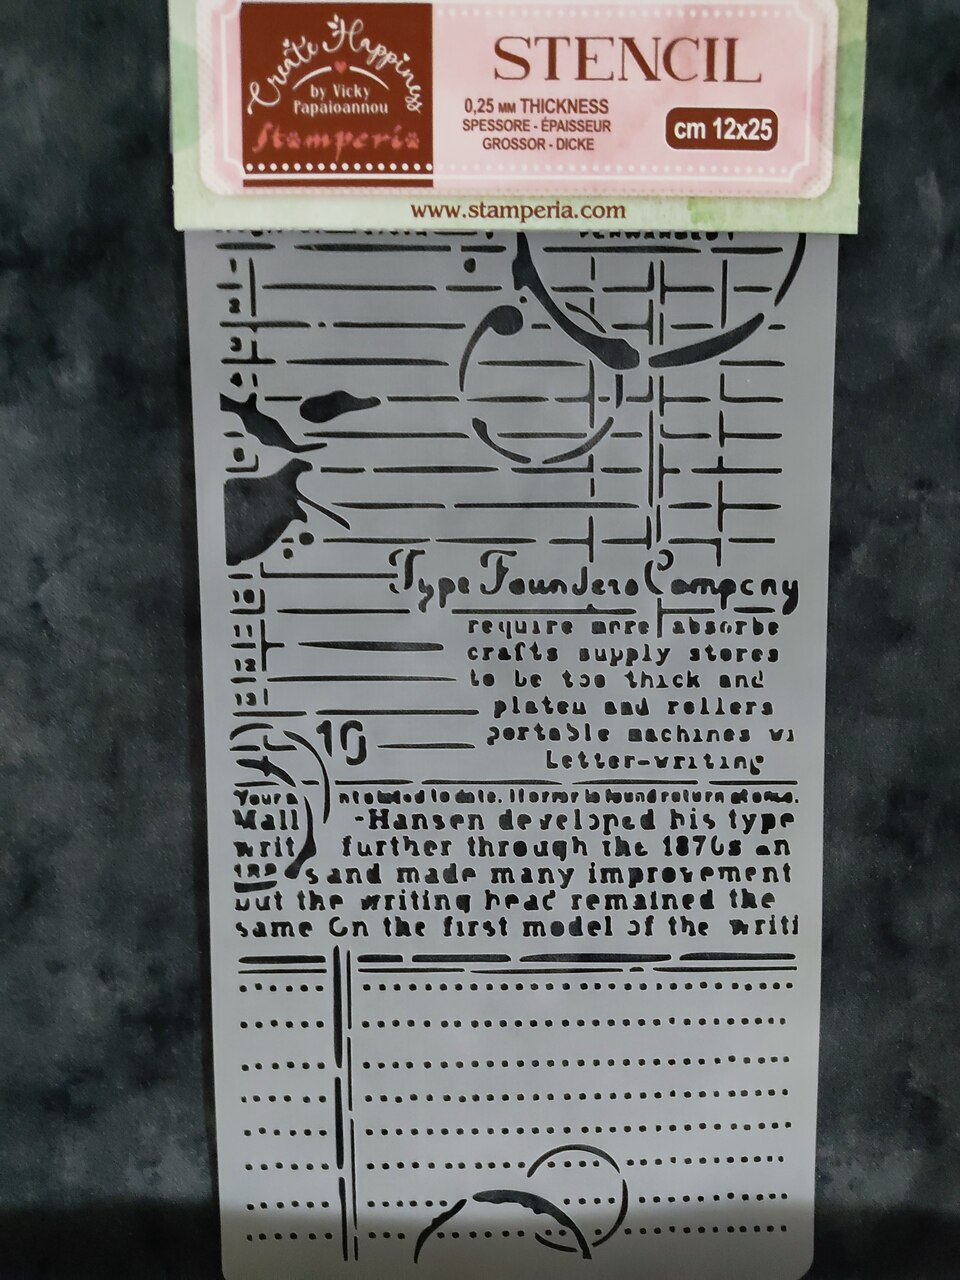 Create Happiness
by Vicky
Papaioannou
Stamperia
STENCIL
0,25 MM THICKNESS
SPESSORE - ÉPAISSEUR
GROSSOR - DICKE
cm 12x25
www.stamperia.com
1
2
3
Type Founders Company
10
require more absorbe
11
crafts supply stores
12
to be too thick and
13
platen and rollers
10
portable machines wi
Letter-writing
Yours
Mall -Hansen developed his type
writ further through the 1870s an
s and made many improvement
but the writing head remained the
same On the first model of the writi